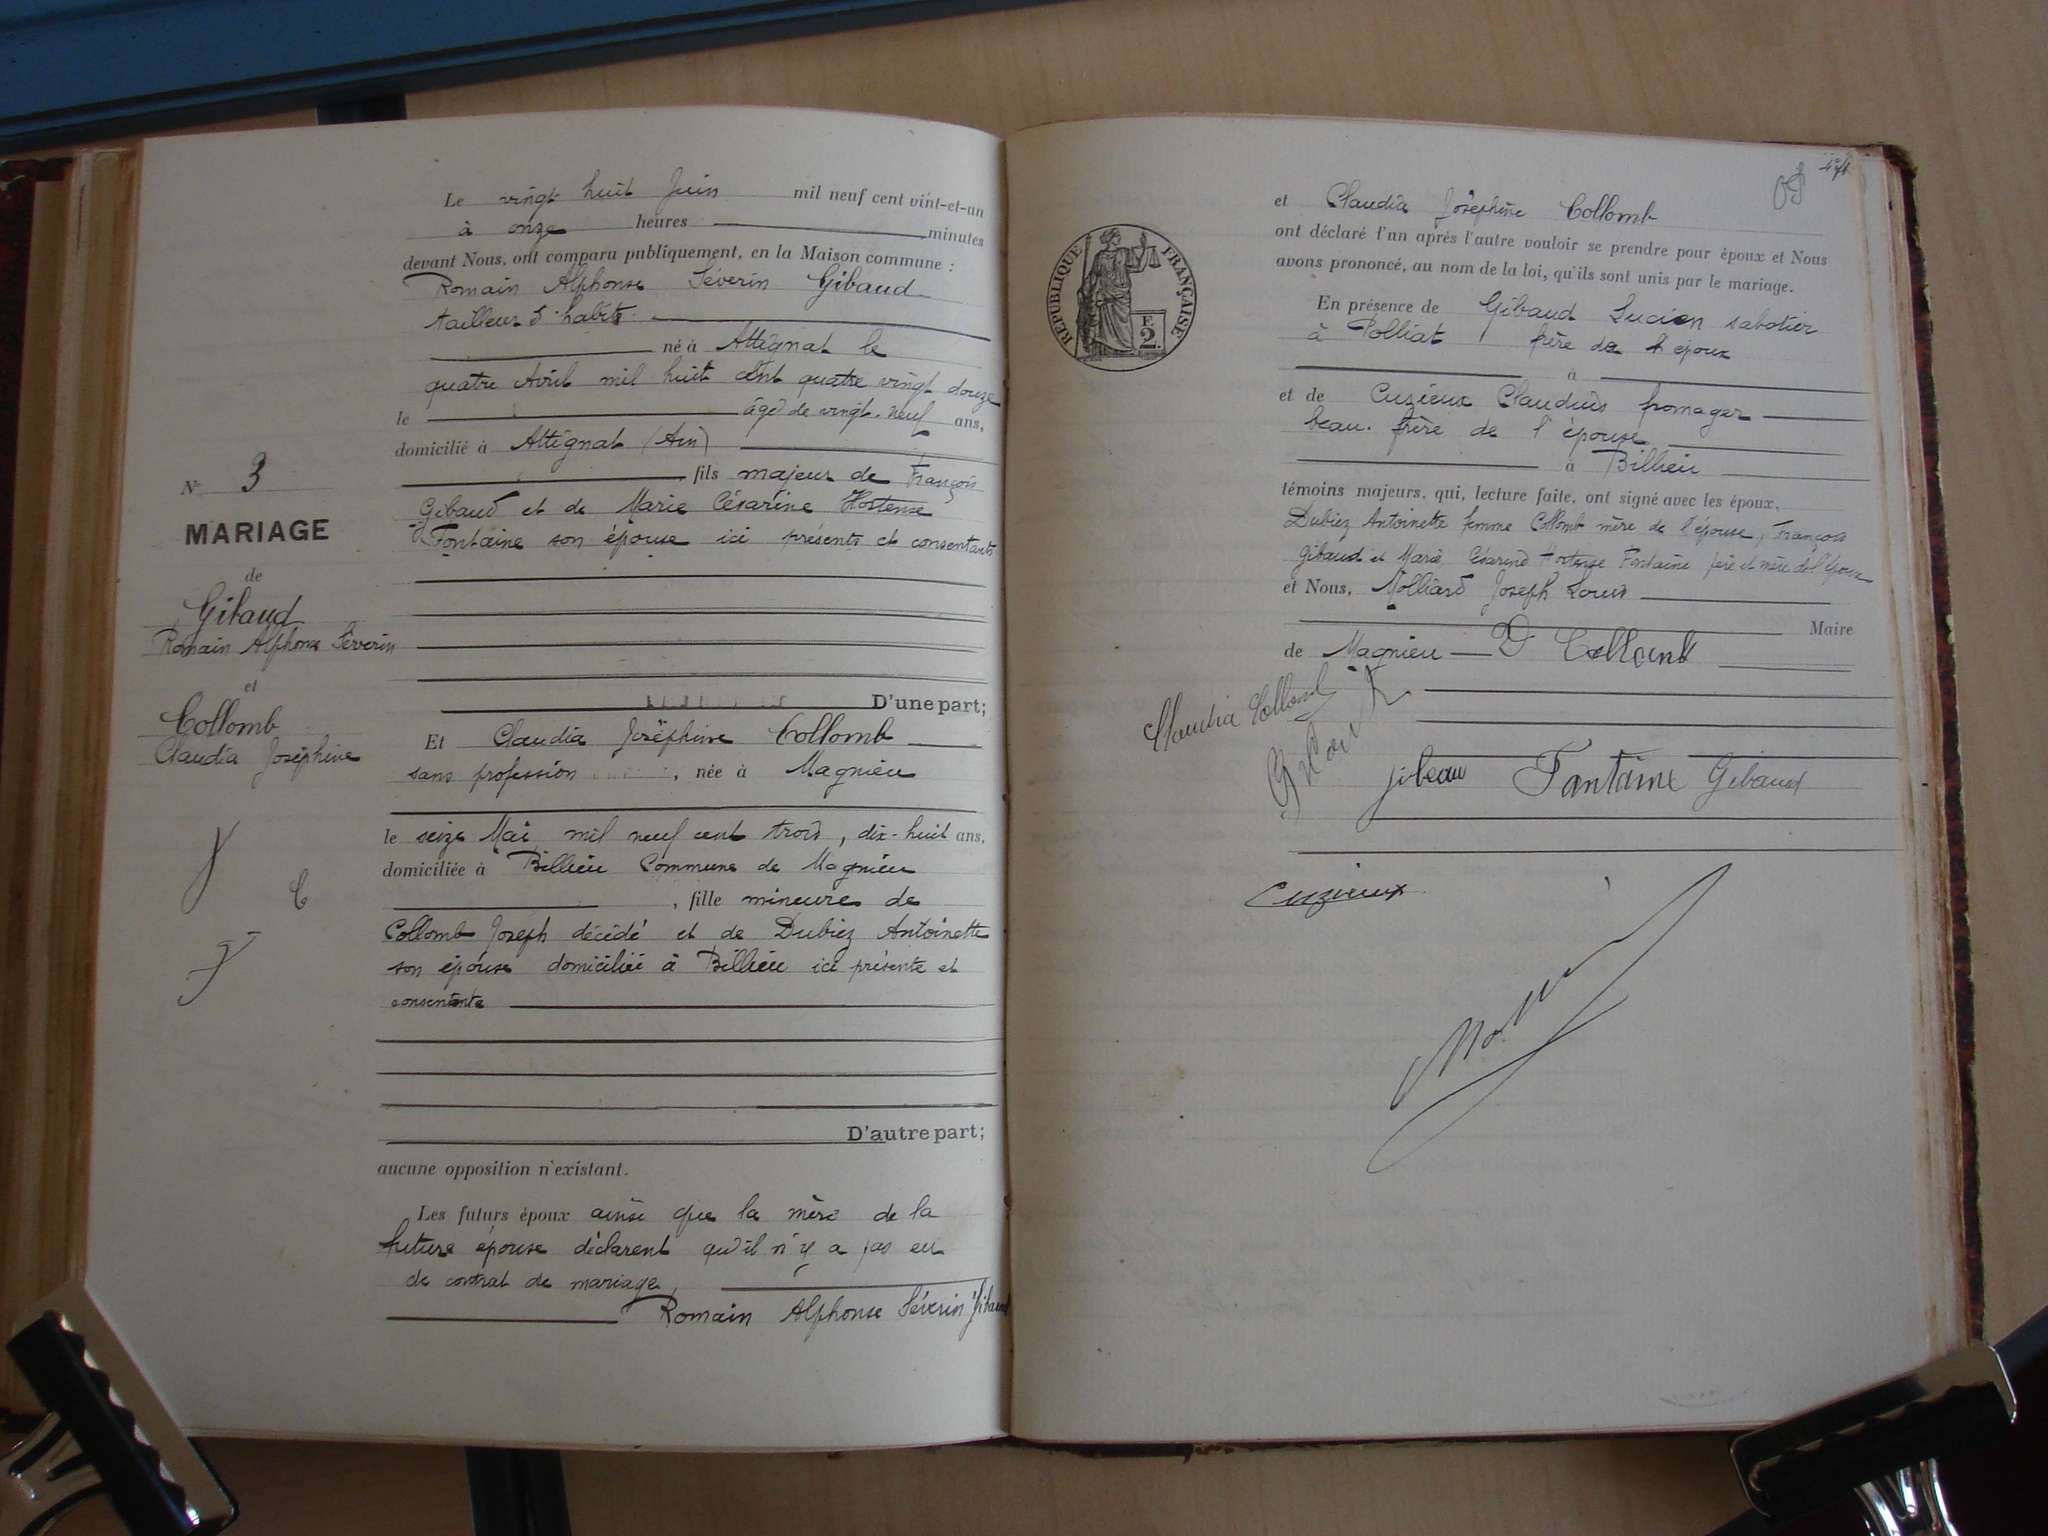 N° 3
MARIAGE
de
Gibaud
Romain Alphonse Séverin
et
Collomb
Claudia Joséphine
Le vingt huit Juin mil neuf cent vint-et-un
à onze heures minutes
devant Nous, ont comparu publiquement, en la Maison commune :
Romain Alphonse Séverin Gibaud
tailleur d'habits
né à Attignat le
quatre Avril mil huit cent quatre vingt douze
le âgé de vingt-neuf ans,
domicilié à Attignat (Ain)
fils majeur de François
Gibaud et de Marie Césarine Hostense
Fontaine son épouse ici présents et consentants
D'une part;
Et Claudia Joséphine Collomb
sans profession, née à Magnieu
le seize Mai mil neuf cent trois, dix-huit ans,
domiciliée à Billieu Commune de Magnieu
, fille mineure de
Collomb Joseph décédé et de Dubiez Antoinette
son épouse domiciliée à Billieu ici présente et
consentente
D'autre part;
aucune opposition n'existant.
Les futurs époux ainsi que la mère de la
future épouse déclarent qu'il n'y a pas eu
de contrat de mariage,
Romain Alphonse Séverin Gibaud
et Claudia Joséphine Collomb
ont déclaré l'un après l'autre vouloir se prendre pour époux et Nous
avons prononcé, au nom de la loi, qu'ils sont unis par le mariage.
RÉPUBLIQUE FRANÇAISE
F.
2.
En présence de Gibaud Lucien sabotier
à Polliat frère de l'époux
à
et de Cuzieux Claudius fromager
beau-frère de l'épouse
à Billieu
témoins majeurs, qui, lecture faite, ont signé avec les époux,
Dubiez Antoinette femme Collomb mère de l'épouse, François
Gibaud et Marie Césarine Hortense Fontaine père et mère de l'époux
et Nous, Molliard Joseph Louis
Maire
de Magnieu D Collomb
Claudia Collomb
Gibaud
jibeau Fontaine Gibaud
Cuzieux